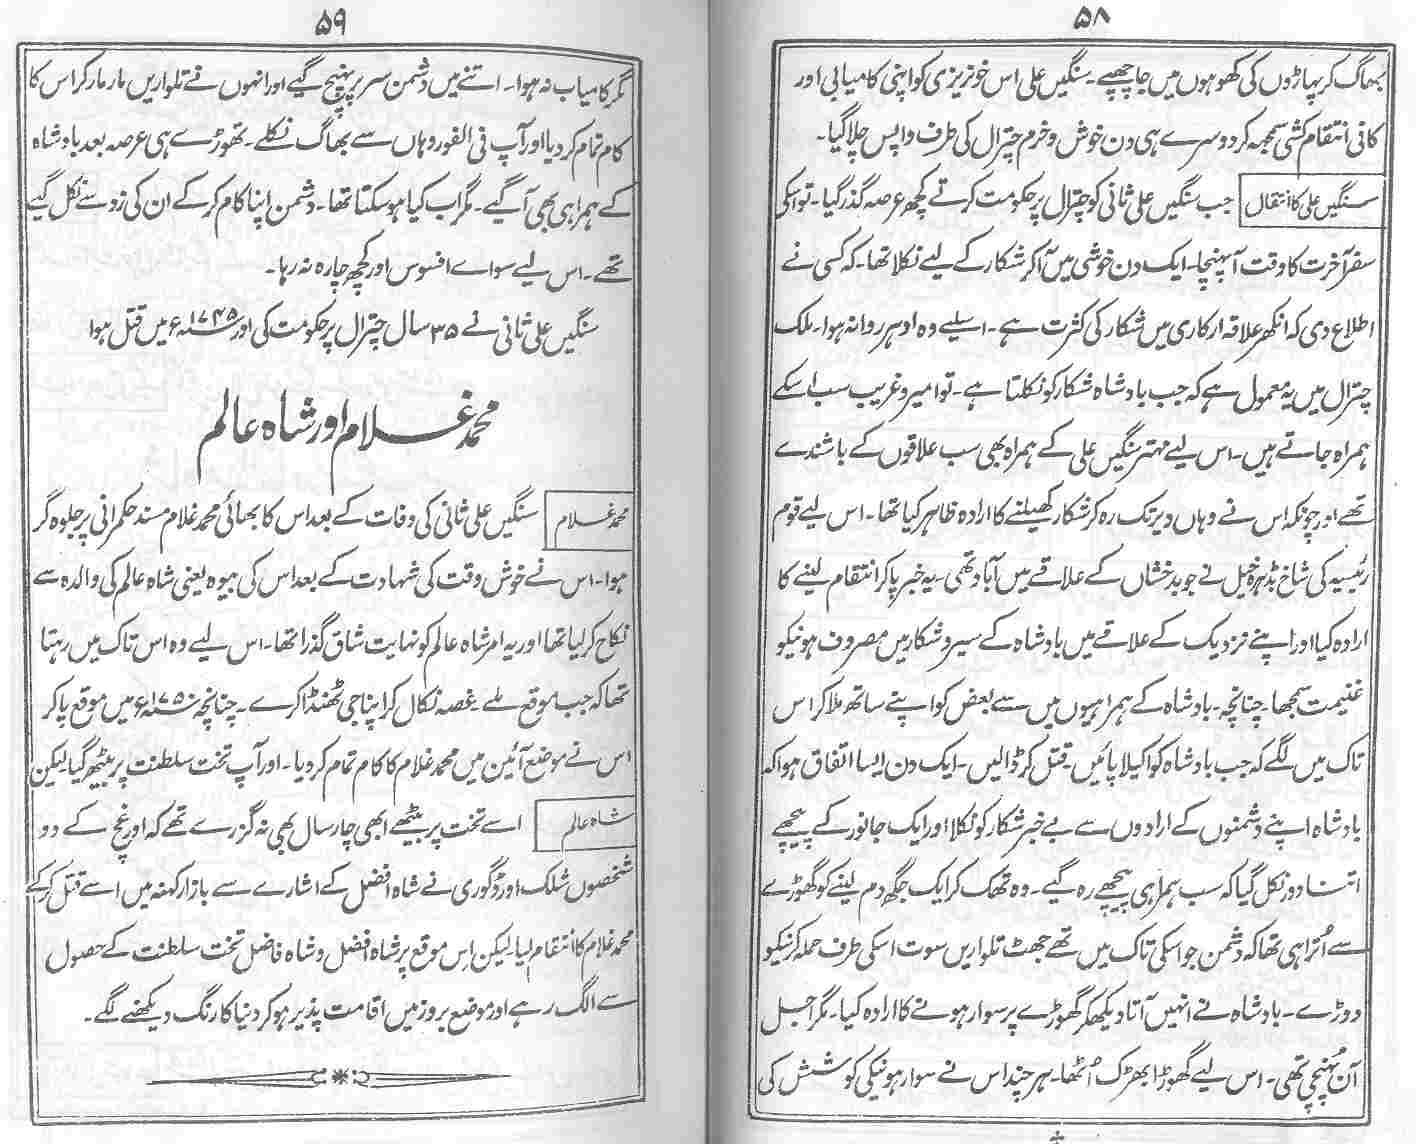 ۵۸
بھاگ کر پہاڑوں کی کھوہوں میں جا چھپے۔ سنگیں علی اس خونریزی کو اپنی کامیابی اور
کافی انتقام کشی سمجھ کر دوسرے ہی دن خوش و خرم چترال کی طرف واپس چلا گیا۔
سنگیں علی کا انتقال
جب سنگیں علی ثانی کو چترال پر حکومت کرتے کچھ عرصہ گذر گیا۔ تو اسکی
سفر آخرت کا وقت آ پہنچا۔ ایک دن خوشی میں آکر شکار کے لیے نکلا تھا۔ کہ کسی نے
اطلاع دی کہ انکھر علاقہ ارکاری میں شکار کی کثرت ہے۔ اسلیے وہ اوہر روانہ ہوا۔ ملک
چترال میں یہ معمول ہے کہ جب بادشاہ شکار کو نکلتا ہے۔ تو امیر و غریب سب اسکے
ہمراہ جاتے ہیں۔ اس لیے مہتر سنگیں علی کے ہمراہ بھی سب علاقوں کے باشندے
تھے اور چونکہ اس نے وہاں دیر تک رہ کر شکار کھیلنے کا ارادہ ظاہر کیا تھا۔ اس لیے قوم
رئیسیہ کی شاخ بڈہرہ خیل نے جو بدخشاں کے علاقے میں آباد تھی۔ یہ خبر پا کر انتقام لینے کا
ارادہ کیا اور اپنے نزدیک کے علاقے میں بادشاہ کے سیر و شکار میں مصروف ہونیکو
غنیمت سمجھا۔ چنانچہ۔ بادشاہ کے ہمراہیوں میں سے بعض کو اپنے ساتھ ملا کر اس
تاک میں لگے کہ جب بادشاہ کو اکیلا پائیں۔ قتل کر ڈالیں۔ ایک دن ایسا اتفاق ہوا کہ
بادشاہ اپنے دشمنوں کے ارادوں سے بے خبر شکار کو نکلا اور ایک جانور کے پیچھے
اتنا دور نکل گیا کہ سب ہمراہی پیچھے رہ گیے۔ وہ تھک کر ایک جگہ دم لینے کو گھوڑے
سے اُترا ہی تھا کہ دشمن جو اسکی تاک میں تھے جھٹ تلواریں سوت اسکی طرف حملہ کرنیکو
دوڑے۔ بادشاہ نے انہیں آتا دیکھکر گھوڑے پر سوار ہونے کا ارادہ کیا۔ مگر اجل
آن پُہنچی تھی۔ اس لیے گھوڑا بھڑک اُٹھا۔ ہر چند اس نے سوار ہونیکی کوشش کی
۵۹
مگر کامیاب نہ ہوا۔ اتنے میں دشمن سر پر پہنچ گیے اور انہوں نے تلواریں مار مار کر اس کا
کام تمام کر دیا اور آپ فی الفور وہاں سے بھاگ نکلے۔ تھوڑے ہی عرصہ بعد بادشاہ
کے ہمراہی بھی آ گیے۔ مگر اب کیا ہو سکتا تھا۔ دشمن اپنا کام کر کے ان کی زد سے نکل گیے
تھے۔ اس لیے سواے افسوس اور کچھ چارہ نہ رہا۔
سنگیں علی ثانی نے ۳۵ سال چترال پر حکومت کی اور ۱۷۴۵ء میں قتل ہوا
محمد غلام اور شاہ عالم
محمد غلام
سنگیں علی ثانی کی وفات کے بعد اس کا بھائی محمد غلام مسند حکمرانی پر جلوہ گر
ہوا۔ اس نے خوش وقت کی شہادت کے بعد اس کی بیوہ یعنی شاہ عالم کی والدہ سے
نکاح کر لیا تھا اور یہ امر شاہ عالم کو نہایت شاق گذرا تھا۔ اس لیے وہ اس تاک میں رہتا
تھا کہ جب موقع ملے۔ غصہ نکال کر اپنا جی ٹھنڈا کرے۔ چنانچہ ۱۷۵۰ء میں موقع پا کر
اس نے موضع آئین میں محمد غلام کا کام تمام کر دیا۔ اور آپ تخت سلطنت پر بیٹھ گیا لیکن
شاہ عالم
اسے تخت پر بیٹھے ابھی چار سال بھی نہ گزرے تھے کہ اورغچ کے دو
شخصوں شلک اور دگوری نے شاہ افضل کے اشارے سے بازار کہنہ میں اسے قتل کر کے
محمد غلام کا انتقام لیا۔ لیکن اِس موقع پر شاہ افضل و شاہ فاضل تخت سلطنت کے حصول
سے الگ رہے اور موضع بروز میں اقامت پذیر ہو کر دنیا کا رنگ دیکھنے لگے۔